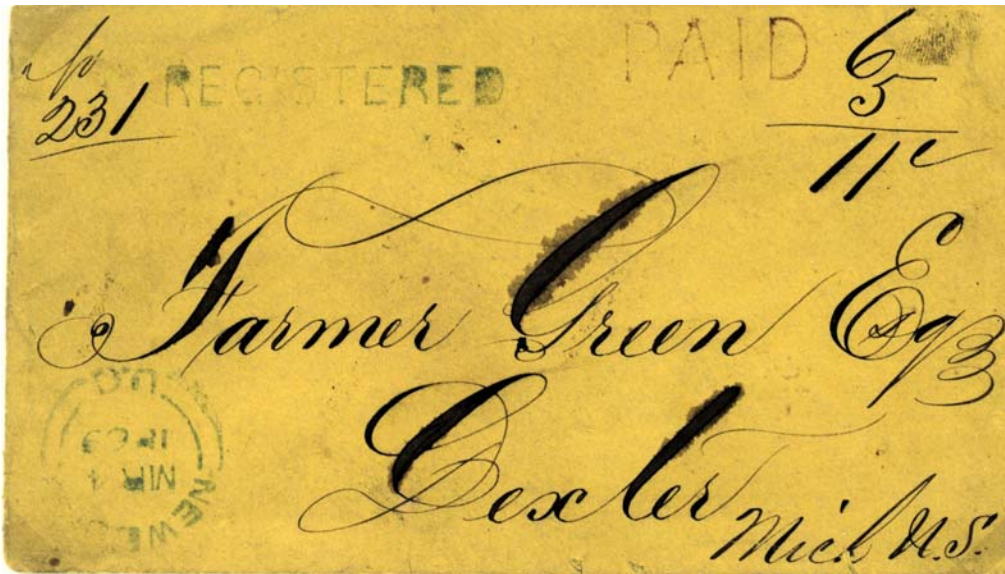 No
231
REGISTERED
PAID
6
5
11c
Farmer Green Esq
Dexter
Mich U.S.
U.C
MR 4